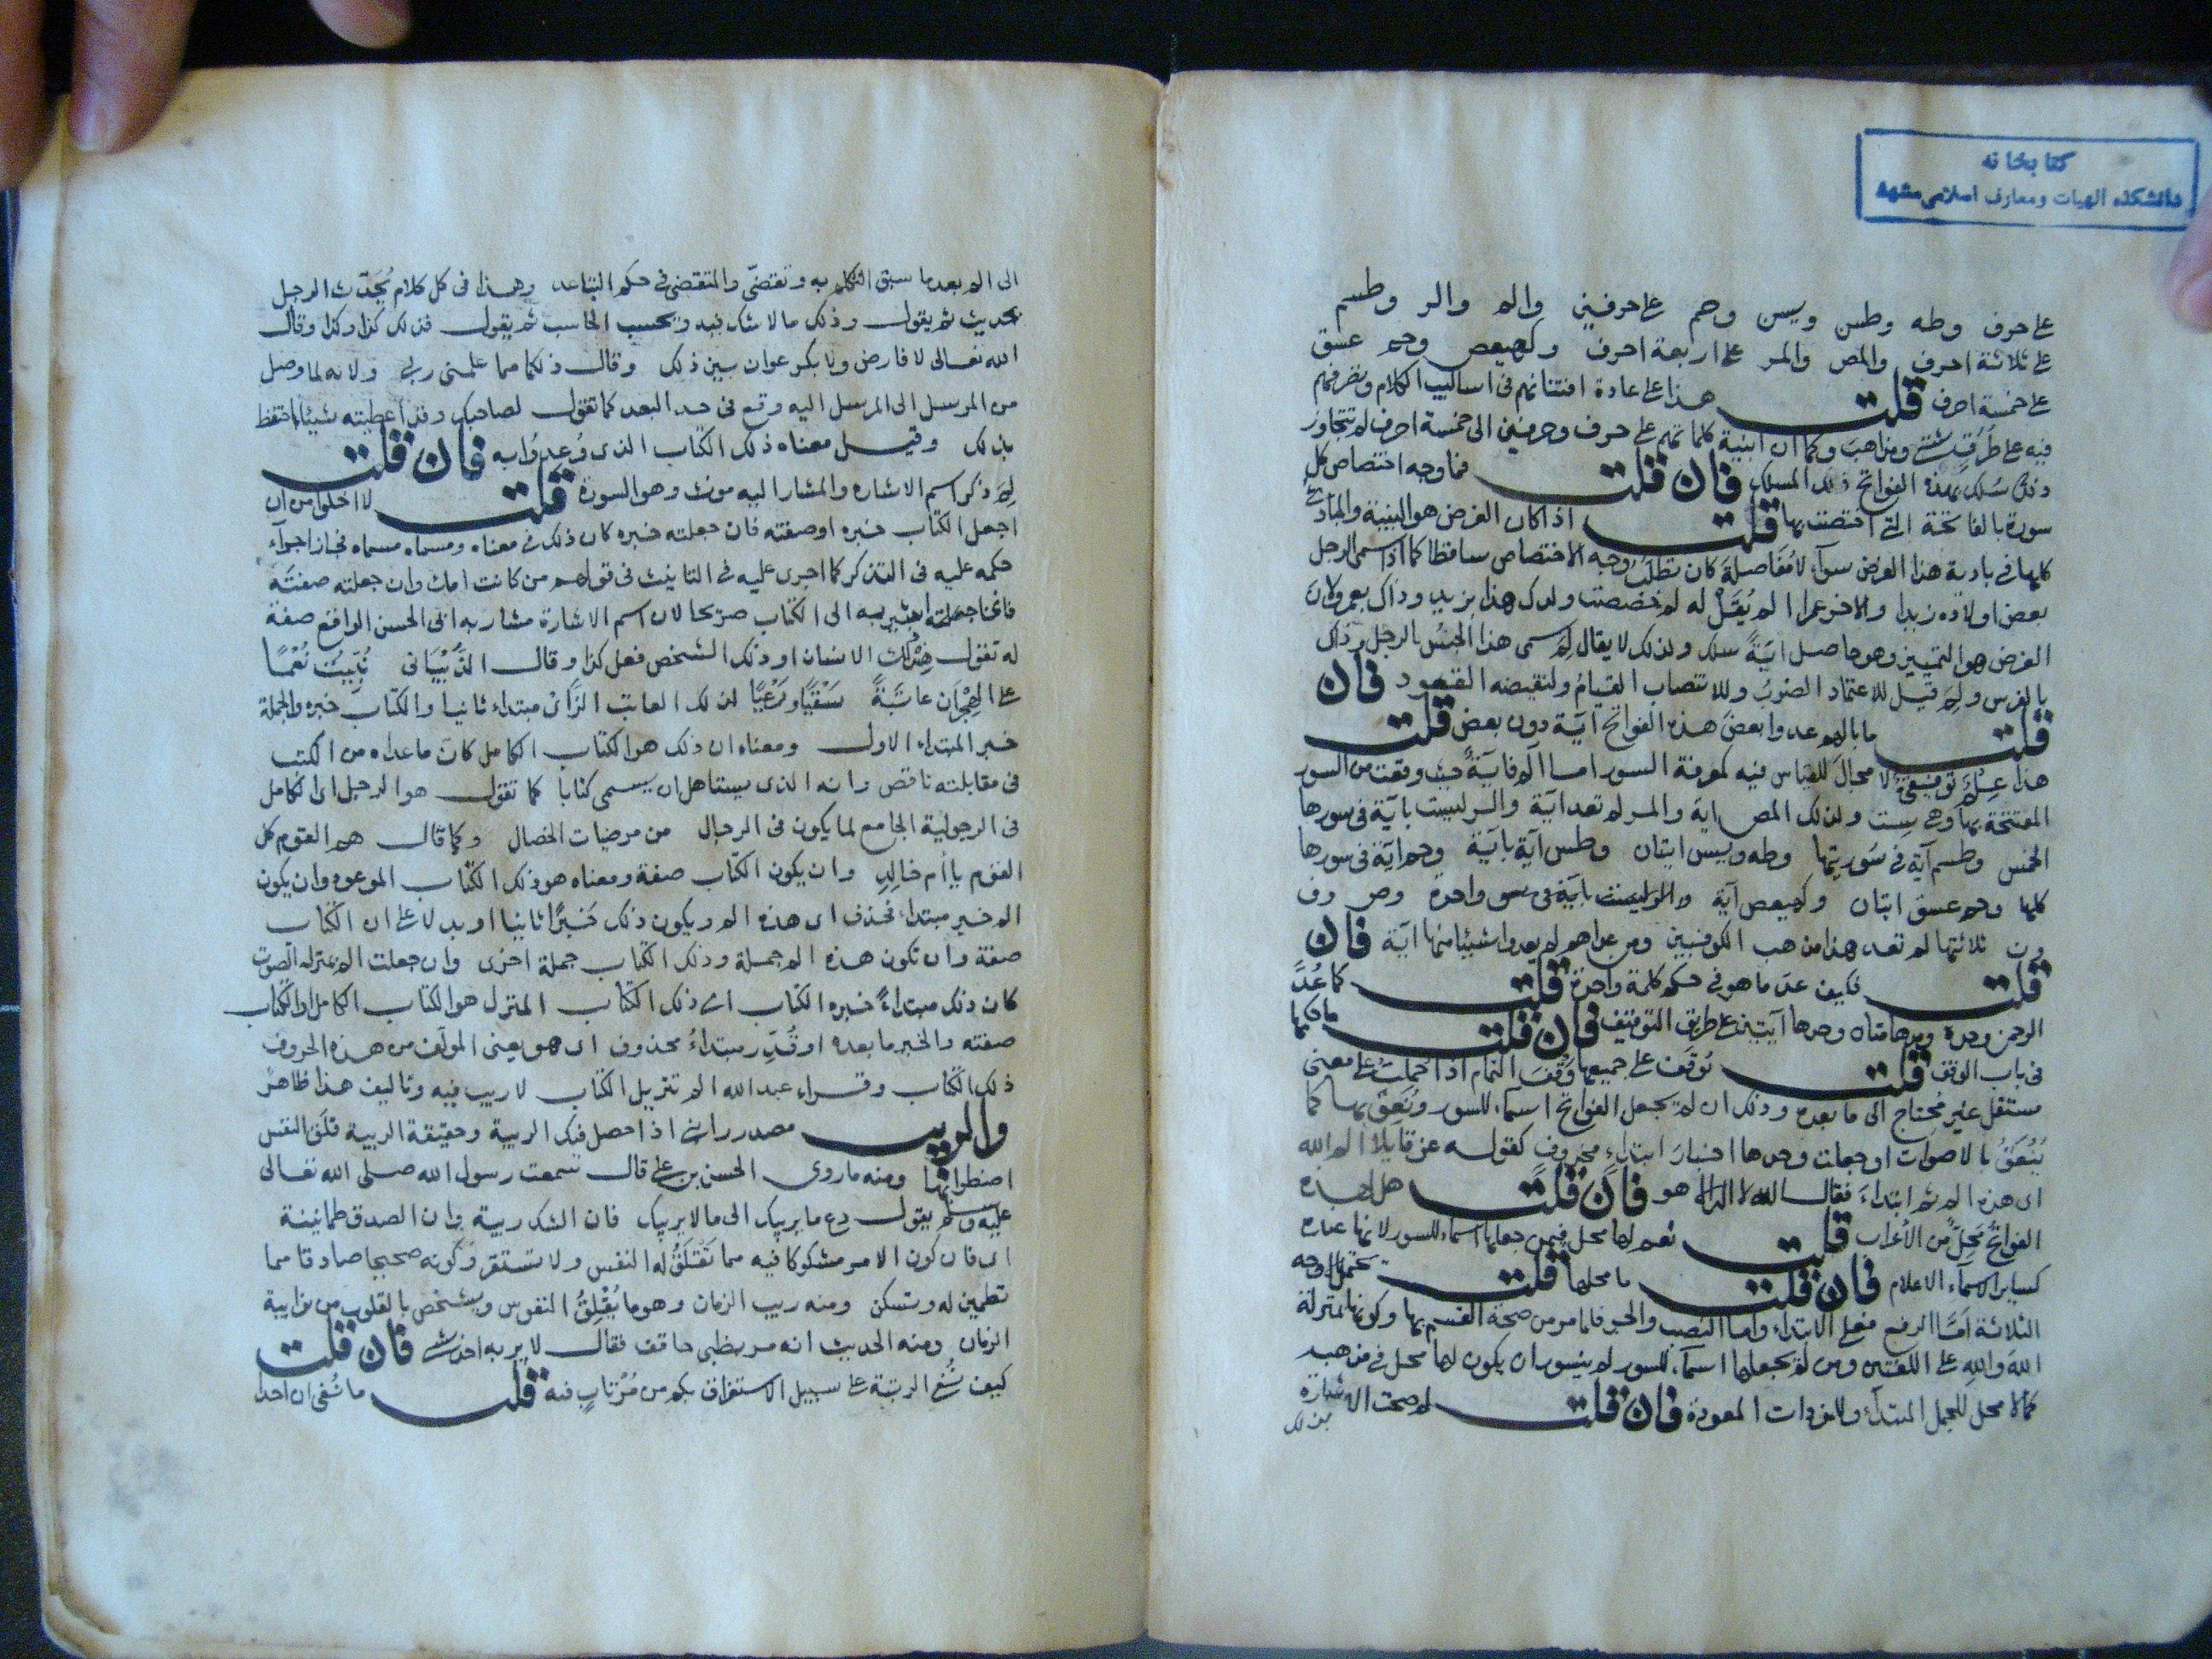 کتابخانه
دانشکده الهیات و معارف اسلامی مشهد
على حرف وطه وطس ويس وحم على حرفين والم والر وطسم
على ثلاثة احرف والمص والمر على اربعة احرف وكهيعص وحم عسق
على خمسة احرف قلت هذا على عادة افتنانهم فى اساليب الكلام وتصرفهم
فيه على طرق شتى ومذاهب وكما ان ابنية كلماتهم على حرف وحرفين الى خمسة احرف لم تتجاوز
ذلك سلك بهذه الفواتح ذلك المسلك فان قلت فما وجه اختصاص كل
سورة بالفاتحة التى اختصت بها قلت اذا كان الغرض هو التنبيه والمبادى
كلها فى تادية هذا الغرض سوآء لا مفاصلة كان تطلب وجه الاختصاص ساقطا كما اذا سمى الرجل
بعض اولاده زيدا والاخر عمرا لم يقل له لم خصصت ولدك هذا بزيد وذاك بعمرو لان
الغرض هو التمييز وهو حاصل اية سلك ولذلك لا يقال لم سمى هذا الجنس بالرجل وذاك
بالفرس ولم قيل للاعتماد الضرب وللانتصاب القيام ولنقيضه القعود فان
قلت ما بالهم عدوا بعض هذه الفواتح اية دون بعض قلت
هذا علم توقيفى لا مجال للقياس فيه كمعرفة السور اما الم فاية حيث وقعت من السور
المفتتحة بها وهى ست ولذلك المص اية والمر لم تعد اية والر ليست باية فى سورها
الخمس وطسم آية فى سورتيها وطه ويس ايتان وطس آية بآية وحم اية فى سورها
كلها وحم عسق ايتان وكهيعص آية والر ليست بآية فى سور واحدة وص وق
ون ثلاثتها لم تعد هذا مذهب الكوفيين ومن عداهم لم يعدوا شيئا منها اية فان
قلت فكيف عد ما هو فى حكم كلمة واحدة قلت كما عد
الرحمن وحده ومدهامتان وحدها آيتين على طريق التوقيف فان قلت ما حكمها
فى باب الوقف قلت توقف على جميعها وقف التمام اذا حملت على معنى
مستقل غير محتاج الى ما بعده وذلك ان لم تجعل الفواتح اسماء للسور ونعق بها كما
ينعق بالاصوات او جعلت وحدها اخبار ابتداء محذوف كقوله عز قايلا الم الله
اى هذه الم ثم ابتداء فقال الله لا اله الا هو فان قلت هل لهذه
الفواتح محل من الاعراب قلت نعم لها محل فيمن جعلها اسماء للسور لانها عنده
كساير الاسماء الاعلام فان قلت ما محلها قلت يحتمل الاوجه
الثلاثة اما الرفع فعلى الابتداء واما النصب والجر فلما مر من صحة القسم بها وكونها بمنزلة
الله والله على اللغتين ومن لم يجعلها اسماء للسور لم يتصور ان يكون لها محل فى مذهبه
كما لا محل للجمل المبتداء وللمفردات المعدودة فان قلت لم صحت الاشارة
بذلك
الى الم بعد ما سبق التكلم به وتقضى والمتقضى فى حكم التباعد وهذا فى كل كلام يحدث الرجل
بحديث ثم يقول وذلك ما لا شك فيه ويحسب الحاسب ثم يقول فذلك كذا وكذا وقال
الله تعالى لا فارض ولا بكر عوان بين ذلك وقال ذلكما مما علمنى ربى ولانه لما وصل
من المرسل الى المرسل اليه وقع فى حد البعد كما تقول لصاحبك وقد اعطيته شيئا احتفظ
بذلك وقيل معناه ذلك الكتاب الذى وعدوا به فان قلت
لم ذكر اسم الاشارة والمشار اليه مونث وهو السورة قلت لا اخلوا من ان
اجعل الكتاب خبره او صفته فان جعلته خبره كان ذلك فى معناه ومسماه مسماه فجاز اجرآء
حكمه عليه فى التذكير كما اجرى عليه فى التانيث فى قولهم من كانت امك وان جعلته صفته
فانما اشير به الى الكتاب صريحا لان اسم الاشارة مشار به الى الجنس الواقع صفة
له تقول هند ذلك الانسان او ذلك الشخص فعل كذا وقال الذبيانى نبيت نعما
على الهجران عاتبة سقيا ورعيا لذلك العاتب الزارى مبتداء ثانيا والكتاب خبره والجملة
خبر المبتداء الاول ومعناه ان ذلك هو الكتاب الكامل كان ما عداه من الكتب
فى مقابلته ناقص وانه الذى يستاهل ان يسمى كتابا كما تقول هو الرجل اى الكامل
فى الرجولية الجامع لما يكون فى الرجال من مرضيات الخصال وكما قال هم القوم كل
القوم يا ام خالد وان يكون الكتاب صفة ومعناه هو ذلك الكتاب الموعود وان يكون
الم خبر مبتداء محذف اى هذه الم ويكون ذلك خبرا ثانيا او بدلا على ان الكتاب
صفة وان تكون هذه الم جملة وذلك الكتاب جملة اخرى وان جعلت الم بمنزلة الصوت
كان ذلك مبتداء خبره الكتاب اى ذلك الكتاب المنزل هو الكتاب الكامل او الكتاب
صفته والخبر ما بعده او قدر مبتداء محذوف اى هو يعنى المولف من هذه الحروف
ذلك الكتاب وقراء عبد الله الم تنزيل الكتاب لا ريب فيه وتاليف هذا ظاهر
والريب مصدر رابنى اذا حصل فيك الريبة وحقيقة الريبة قلق النفس
اضطرابها ومنه ما روى الحسن بن على قال سمعت رسول الله صلى الله تعالى
عليه وسلم يقول دع ما يريبك الى ما لا يريبك فان الشك ريبة وان الصدق طمانينة
اى فان كون الامر مشكوكا فيه مما تقلق له النفس ولا تستقر وكونه صحيحا صادقا مما
تطمين له وتسكن ومنه ريب الزمان وهو ما يقلق النفوس ويشخص بالقلوب من نوايبه
الزمان ومنه الحديث انه مر بظبى حاقف فقال لا يربه احد بشى فان قلت
كيف نفى الريبة على سبيل الاستغراق بكم من مرتاب فيه قلت ما نفى ان احدا